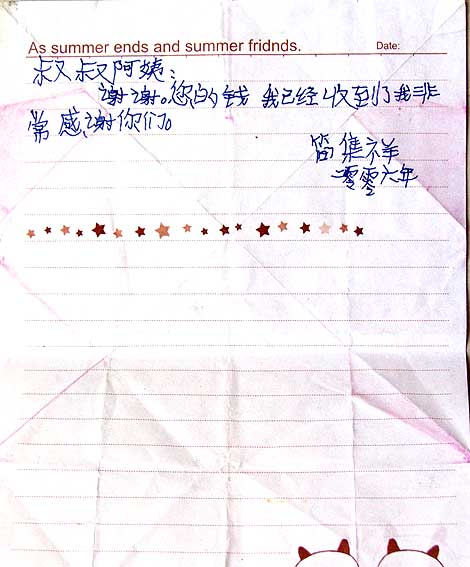 As summer ends and summer fridnds.
Date:
叔叔阿姨：
谢谢。您的钱 我已经收到了我非
常感谢你们。
简集祥
零零六年